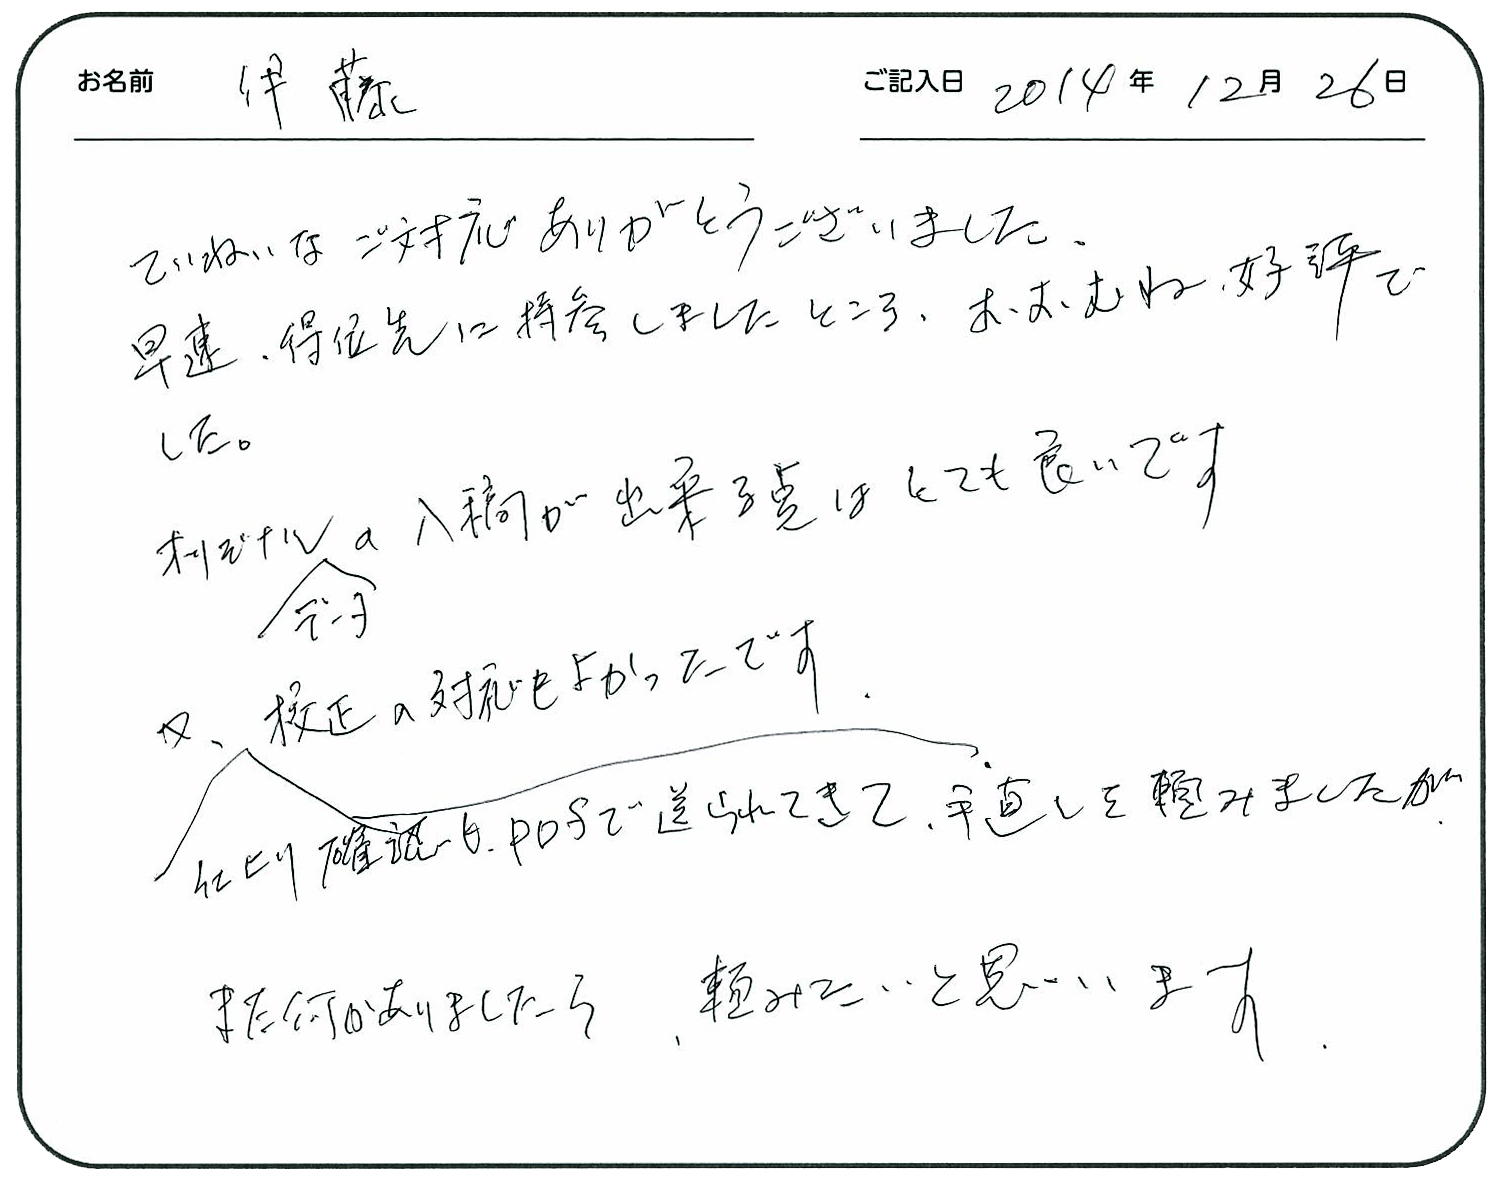 お名前 伊藤 ご記入日 2014年 12月 26日
ていねいなご対応ありがとうございました、
早速、得位先に持参しましたところ、おおむね、好評で
した。
オリジナルの入稿が出来る点はとても良いです
データ
又、校正の対応もよかったです.
仕上り確認も、PDFで送られてきて、手直しを頼みましたが、
また何かありましたら、頼みたいと思います.